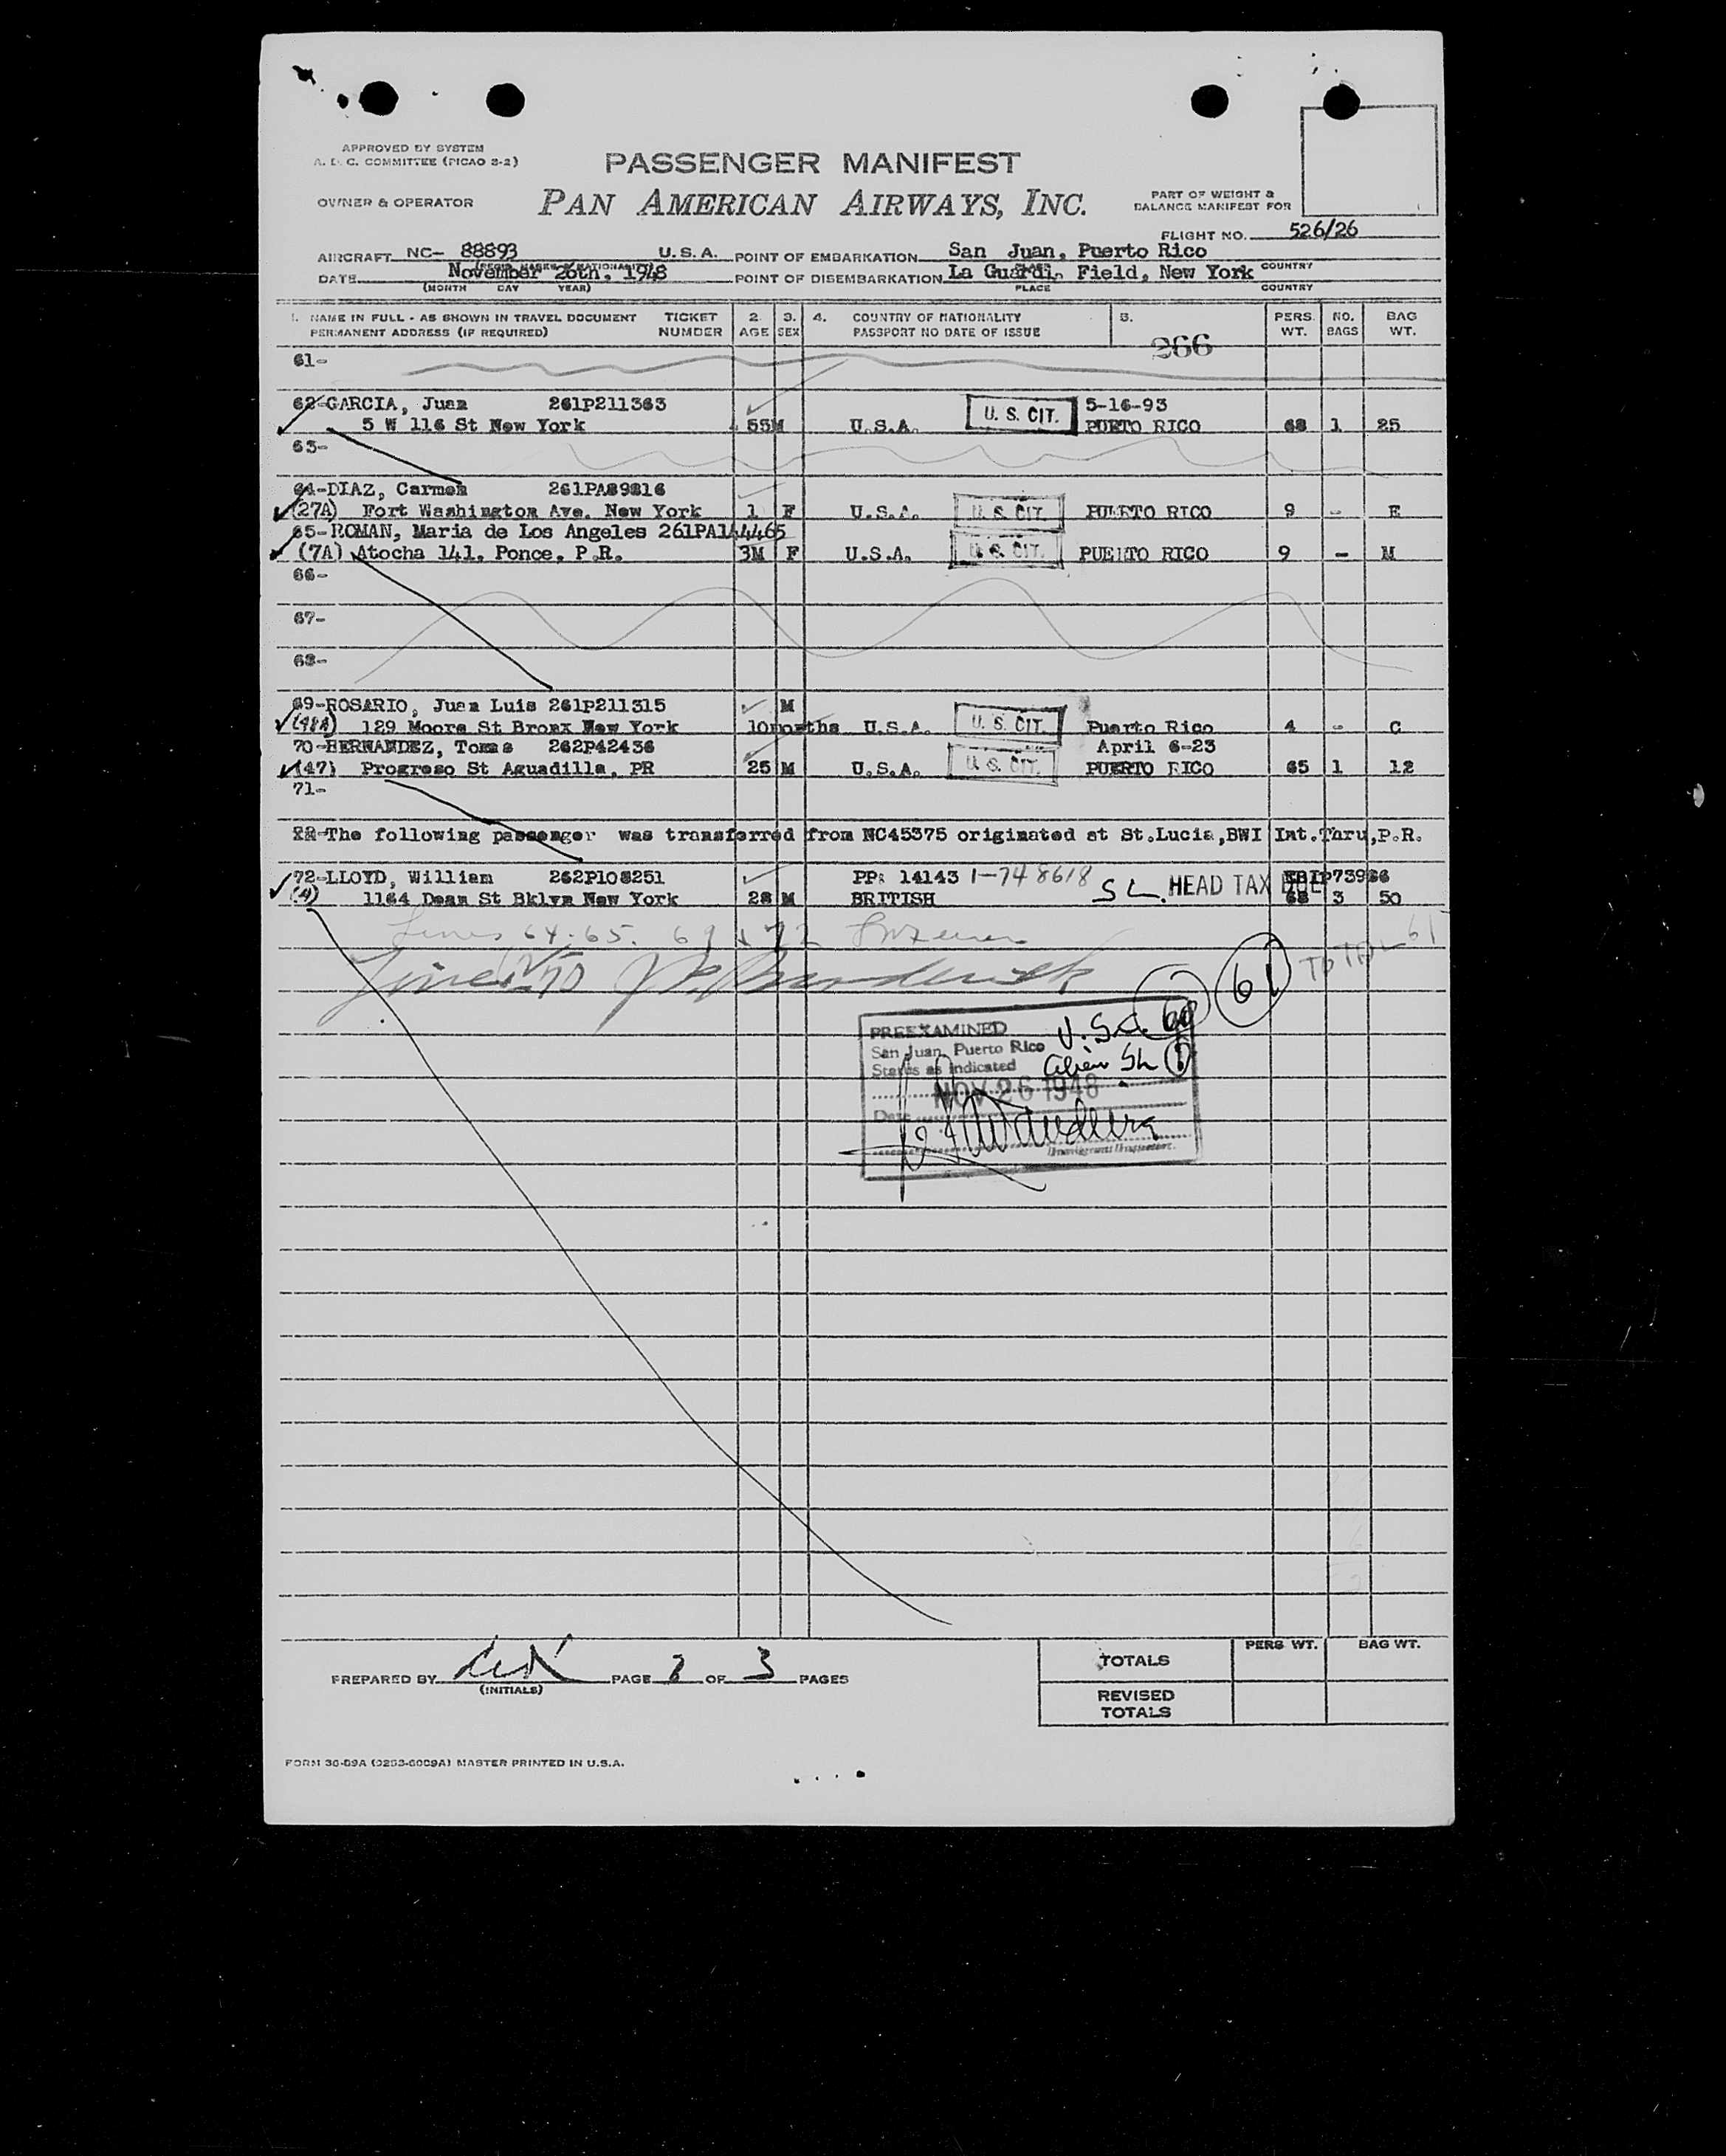 APPROVED BY SYSTEM
A. D. C. COMMITTEE (PICAO 2-2)
PASSENGER MANIFEST
OWNER & OPERATOR
PAN AMERICAN AIRWAYS, INC.
PART OF WEIGHT &
BALANCE MANIFEST FOR
FLIGHT NO. 526/26
AIRCRAFT NC- 88893 U.S.A. POINT OF EMBARKATION San Juan, Puerto Rico
DATE November 26th, 1948 POINT OF DISEMBARKATION La Guardia Field, New York COUNTRY
(MONTH DAY YEAR) PLACE COUNTRY
1. NAME IN FULL - AS SHOWN IN TRAVEL DOCUMENT TICKET 2. 3. 4. COUNTRY OF NATIONALITY 5. PERS. NO. BAG
PERMANENT ADDRESS (IF REQUIRED) NUMBER AGE SEX PASSPORT NO DATE OF ISSUE WT. BAGS WT.
266
61-
62-GARCIA, Juan 261P211363 5-16-93
5 W 116 St New York 55 M U.S.A. U. S. CIT. PUERTO RICO 68 1 25
63-
64-DIAZ, Carmen 261PA89816
(27A) Fort Washington Ave. New York 1 F U.S.A. U. S. CIT. PUERTO RICO 9 - E
65-ROMAN, Maria de Los Angeles 261PA144465
(7A) Atocha 141, Ponce, P.R. 3M F U.S.A. U. S. CIT. PUERTO RICO 9 - M
66-
67-
68-
69-ROSARIO, Juan Luis 261P211315 M
(48A) 129 Moore St Bronx New York 10months U.S.A. U. S. CIT. Puerto Rico 4 - C
70-HERNANDEZ, Tomas 262P42436 April 6-23
(47) Progreso St Aguadilla, PR 25 M U.S.A. U. S. CIT. PUERTO RICO 65 1 12
71-
The following passenger was transferred from NC45375 originated at St.Lucia,BWI Int.Thru,P.R.
72-LLOYD, William 262P108251 PP: 14143 1-748618
(4) 1164 Dean St Bklyn New York 28 M BRITISH S L. HEAD TAX DUE 68 3 50
Lines 64, 65, 69 & 72
TOTAL 61
61
PREEXAMINED U.S.C. 60
San Juan, Puerto Rico
Status as indicated alien SL 1
NOV 26 1948
Date
Immigrant Inspector.
PERS WT. BAG WT.
TOTALS
PREPARED BY PAGE 3 OF 3 PAGES
(INITIALS)
REVISED
TOTALS
FORM 30-09A (0253-6009A) MASTER PRINTED IN U.S.A.